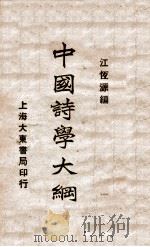 江恆源編
中國詩學大綱
上海大東書局印行
www.toobook.info